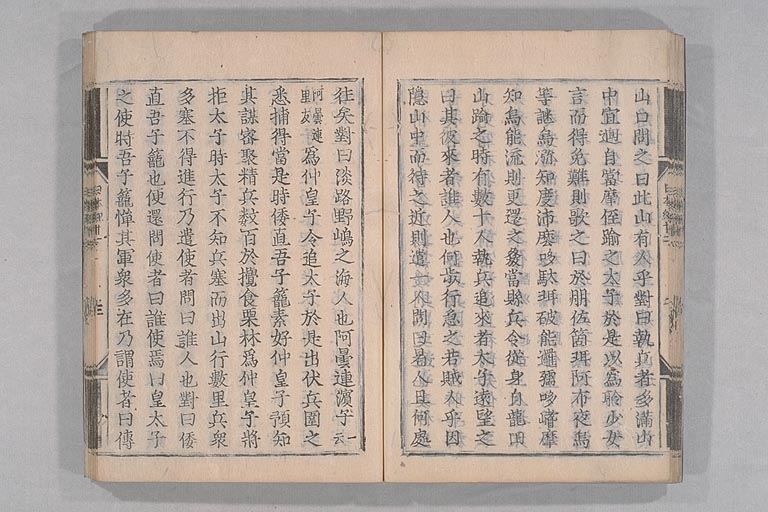 山口問之曰此山有人乎對曰執兵者多滿山
中宜廻自當摩徑踰之太子於是以為聆少女
言而得免難則歌之曰於朋佐箇珥阿布夜烏
等謎烏瀰知度沛麼哆駄珥破能邏孺哆嗜摩
知烏能流則更還之發當縣兵令從身自龍田
山踰之時有數十人執兵追來者太子遠望之
曰其彼來者誰人也何歩行急之若賊人乎因
隱山中而待之近則遣一人問曰曷人且何處
往矣對曰淡路野嶋之海人也阿曇連濱子一云
阿曇連黑友爲仲皇子令追太子於是出伏兵圍之
悉捕得當是時倭直吾子籠素好仲皇子預知
其謀密聚精兵數百於攪食栗林爲仲皇子將
拒太子時太子不知兵塞而出山行數里兵衆
多塞不得進行乃遣使者問曰誰人也對曰倭
直吾子籠也便還問使者曰誰使焉曰皇太子
之使時吾子籠憚其軍衆多在乃謂使者曰傳